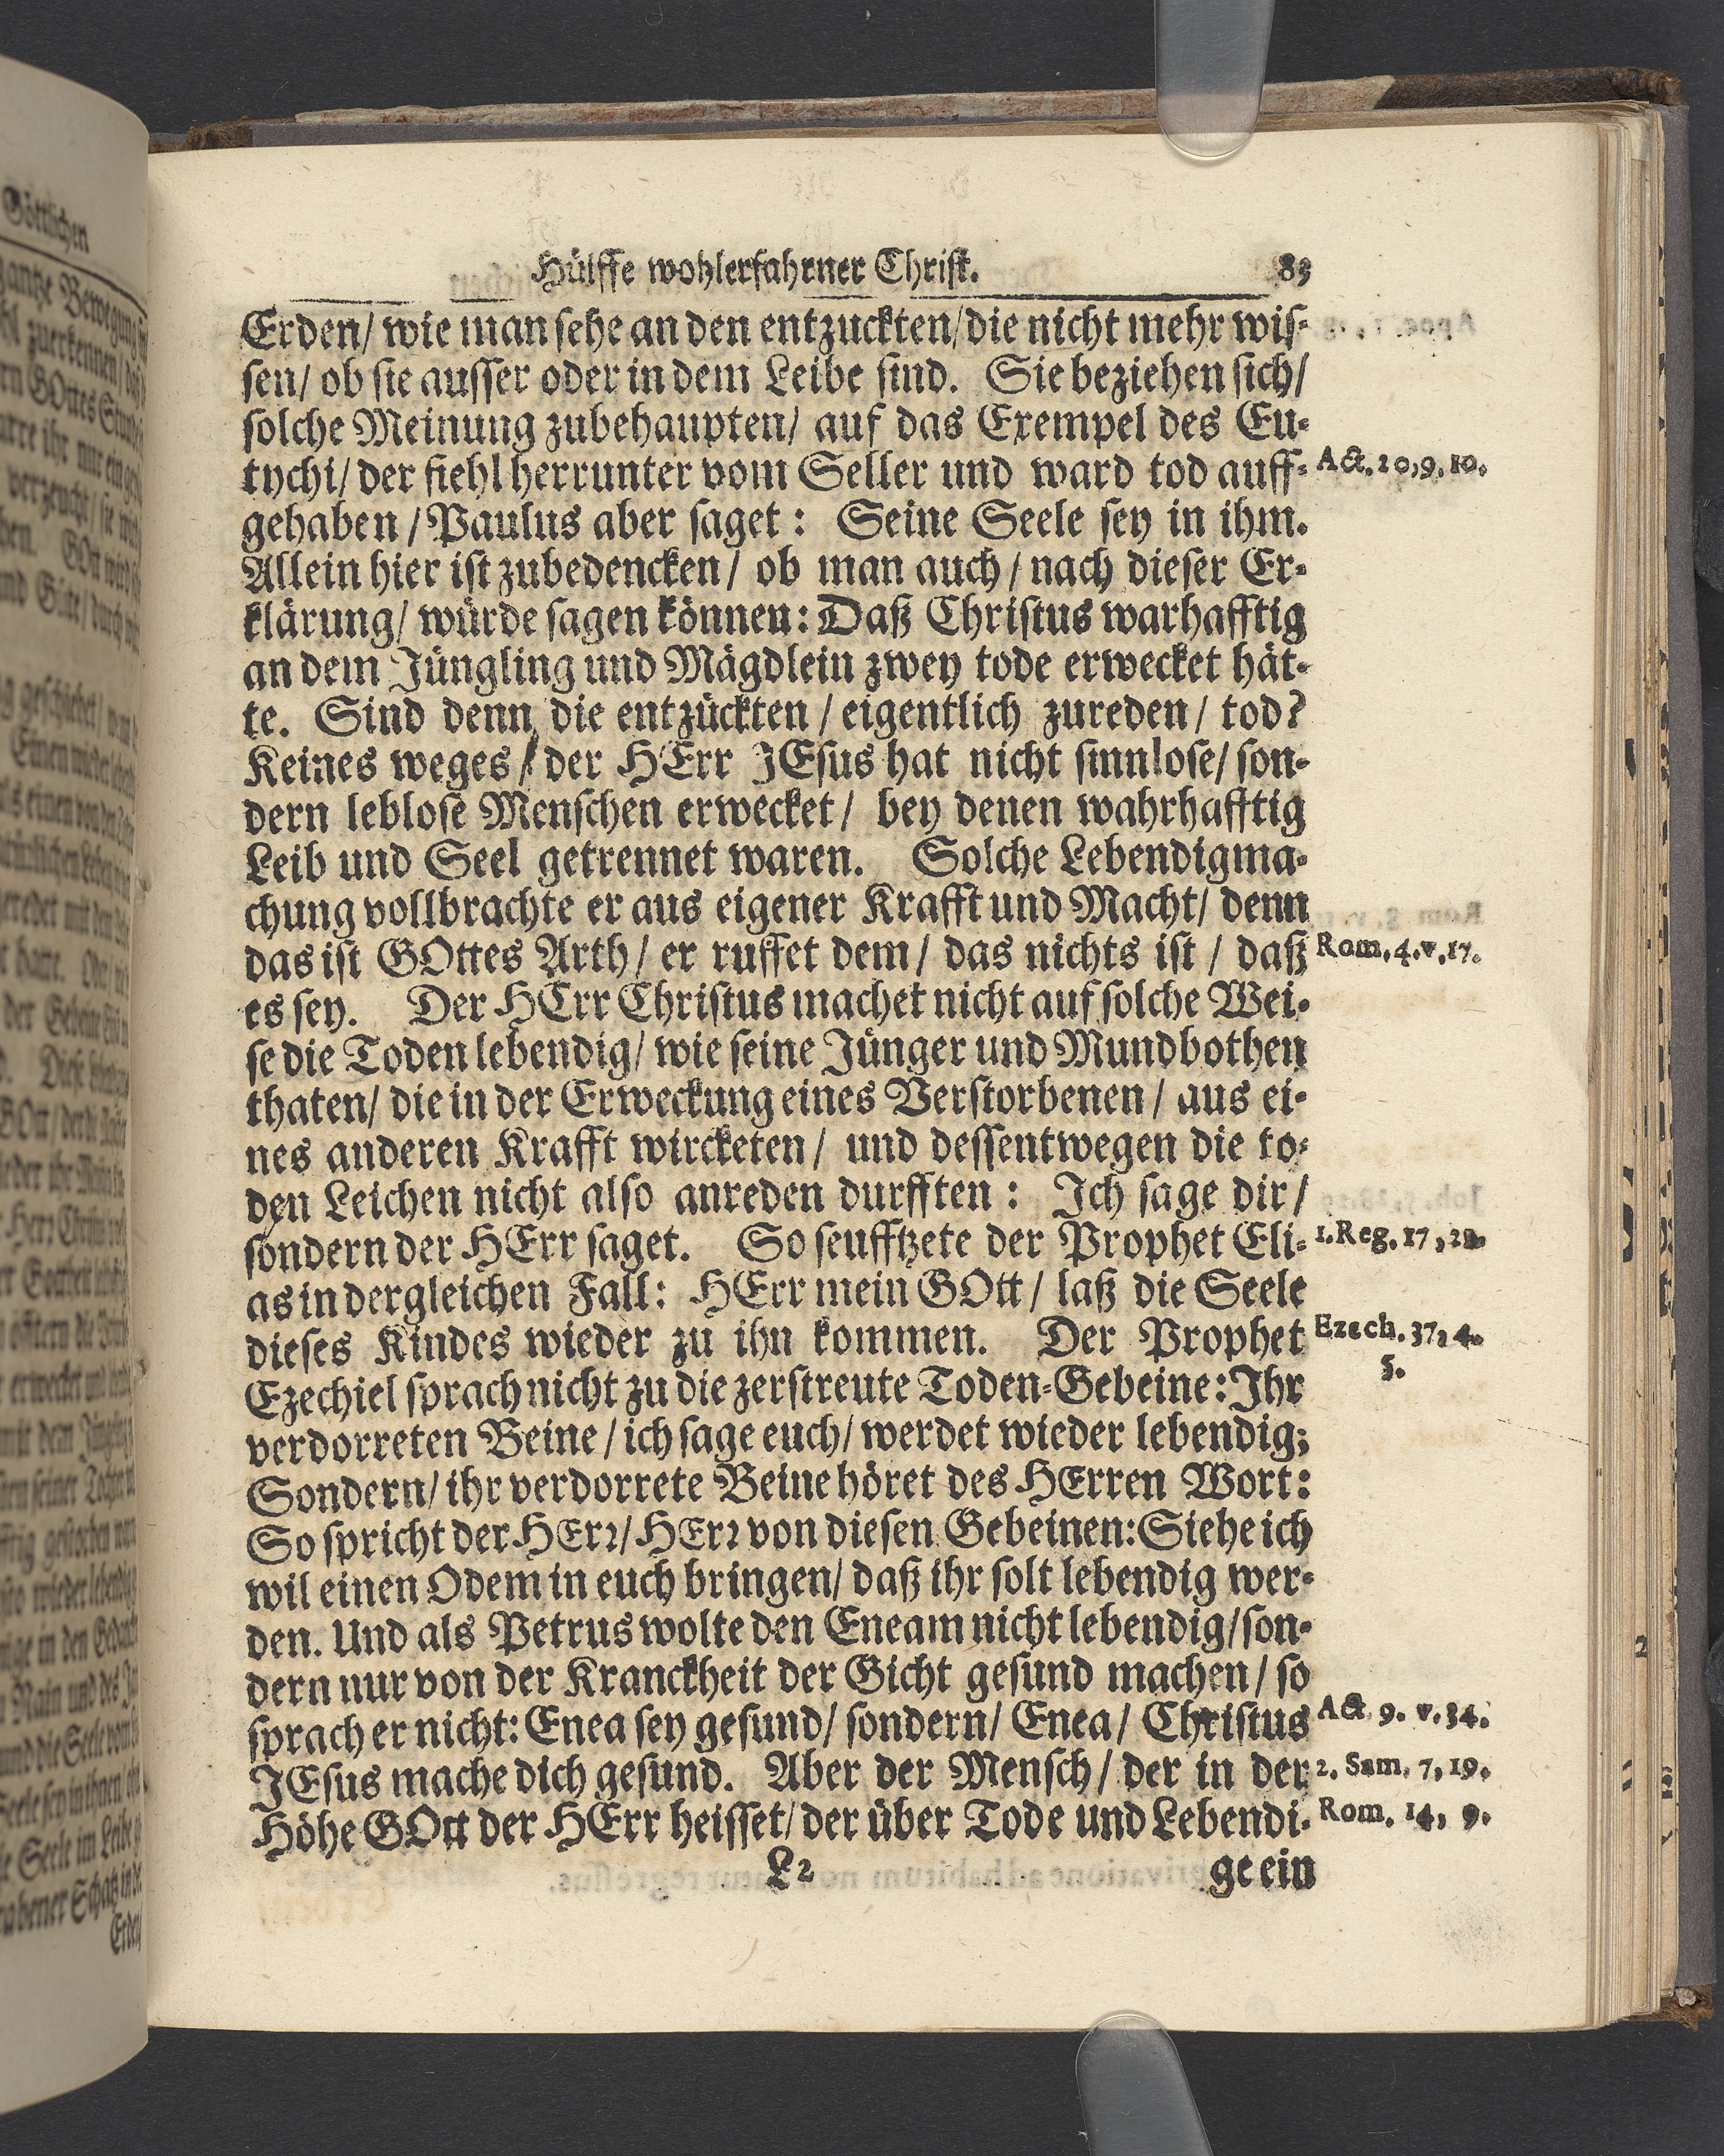 Hülffe wohlerfahrner Christ. 83
Erden/ wie man sehe an den entzuckten/ die nicht mehr wis-
sen/ ob sie ausser oder in dem Leibe sind. Sie beziehen sich/
solche Meinung zubehaupten/ auf das Exempel des Eu-
tychi/ der fiehl herrunter vom Seller und ward tod auff- Act. 20, 9. 10.
gehaben / Paulus aber saget: Seine Seele sey in ihm.
Allein hier ist zubedencken / ob man auch / nach dieser Er-
klärung/ würde sagen können: Daß Christus warhafftig
an dem Jüngling und Mägdlein zwey tode erwecket hät-
te. Sind denn die entzückten / eigentlich zureden / tod?
Keines weges / der HErr JEsus hat nicht sinnlose/ son-
dern leblose Menschen erwecket / bey denen wahrhafftig
Leib und Seel getrennet waren. Solche Lebendigma-
chung vollbrachte er aus eigener Krafft und Macht/ denn
das ist GOttes Arth / er ruffet dem / das nichts ist / daß Rom. 4. v. 17.
es sey. Der HErr Christus machet nicht auf solche Wei-
se die Toden lebendig/ wie seine Jünger und Mundbothen
thaten/ die in der Erweckung eines Verstorbenen / aus ei-
nes anderen Krafft wircketen / und dessentwegen die to-
den Leichen nicht also anreden durfften: Ich sage dir /
sondern der HErr saget. So seufftzete der Prophet Eli- 1. Reg. 17,
as in dergleichen Fall: HErr mein GOtt / laß die Seele
dieses Kindes wieder zu ihn kommen. Der Prophet Ezech. 37, 4.
5.
Ezechiel sprach nicht zu die zerstreute Toden-Gebeine: Ihr
verdorreten Beine / ich sage euch/ werdet wieder lebendig;
Sondern/ ihr verdorrete Beine höret des HErren Wort:
So spricht der HErr/ HErr von diesen Gebeinen: Siehe ich
wil einen Odem in euch bringen/ daß ihr solt lebendig wer-
den. Und als Petrus wolte den Eneam nicht lebendig/ son-
dern nur von der Kranckheit der Gicht gesund machen / so
sprach er nicht: Enea sey gesund/ sondern/ Enea / Christus Act 9. v. 34.
JEsus mache dich gesund. Aber der Mensch / der in der 2. Sam. 7, 19.
Höhe GOtt der HErr heisset/ der über Tode und Lebendi- Rom. 14, 9.
L2 ge ein